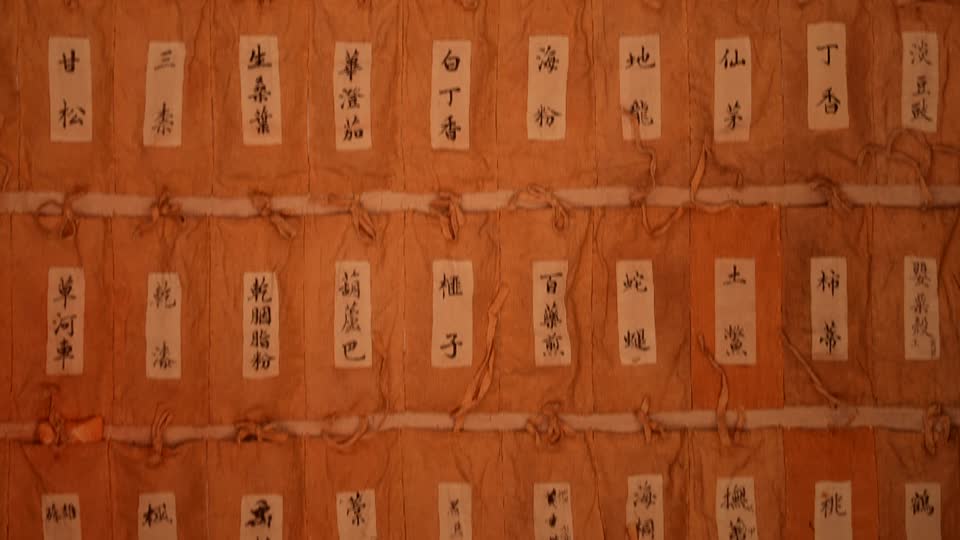 甘松
三柰
生桑葉
華澄茄
白丁香
海粉
地龍
仙茅
丁香
淡豆豉
草河車
乾漆
乾胭脂粉
葫蘆巴
榧子
百藥煎
蛇蜕
土鱉
柿蒂
罌粟殼
楓
藁
海桐
桃
鶴